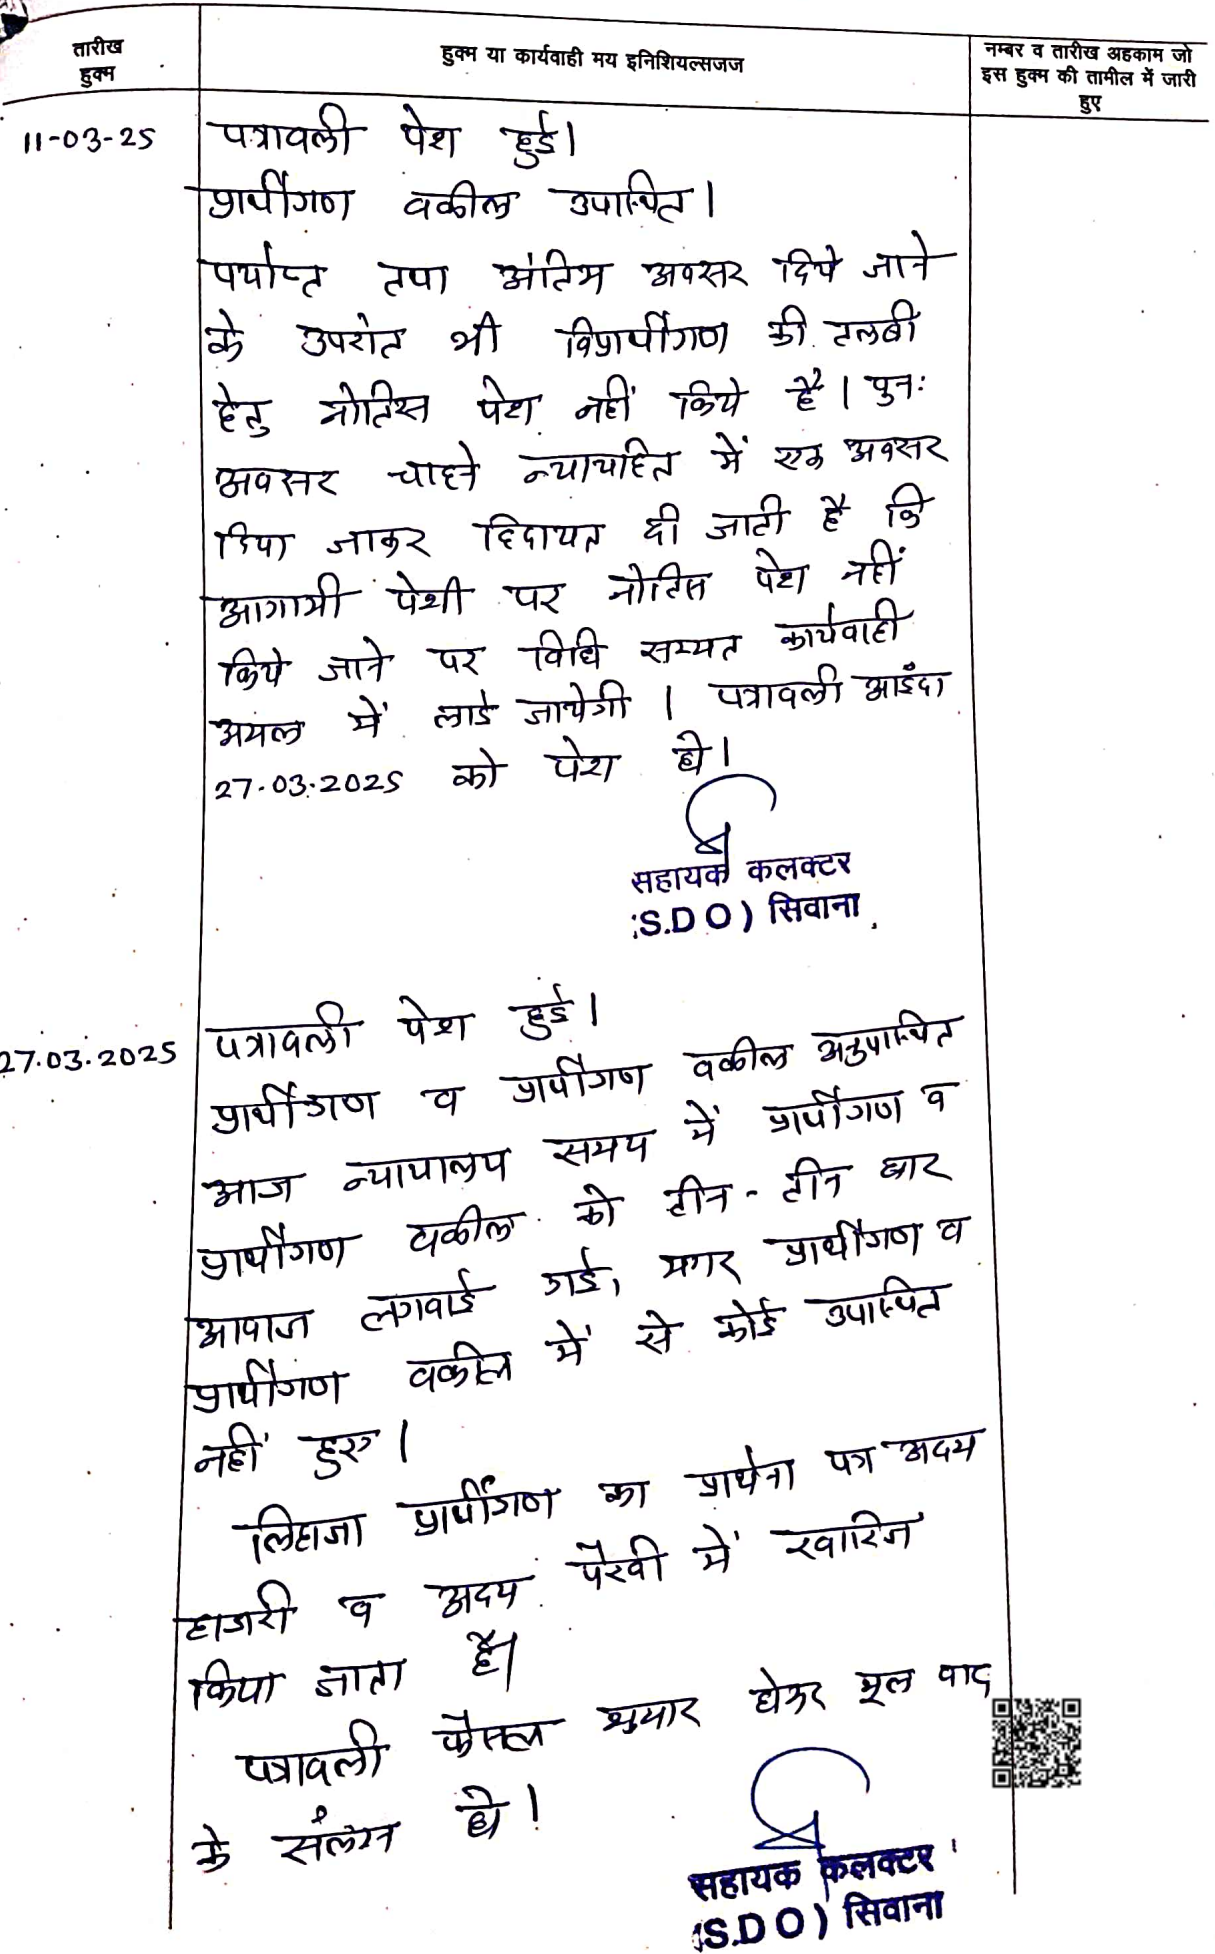 तारीख
हुक्म
हुक्म या कार्यवाही मय इनिशियल्सजज
नम्बर व तारीख अहकाम जो
इस हुक्म की तामील में जारी
हुए
11-03-25
पत्रावली पेश हुई।
प्रार्थीगण वकील उपस्थित।
पर्याप्त तथा अंतिम अवसर दिये जाने
के उपरांत भी विप्रार्थीगण की तलबी
हेतु नोटिस पेश नहीं किये है। पुनः
अवसर चाहने न्यायहित में एक अवसर
दिया जाकर हिदायत दी जाती है कि
आगामी पेशी पर नोटिस पेश नहीं
किये जाने पर विधि सम्मत कार्यवाही
अमल में लाई जायेगी। पत्रावली आईंदा
27.03.2025 को पेश हो।
सहायक कलक्टर
(S.D O) सिवाना
27.03.2025
पत्रावली पेश हुई।
प्रार्थीगण व प्रार्थीगण वकील अनुपस्थित
आज न्यायालय समय में प्रार्थीगण व
प्रार्थीगण वकील को तीन-तीन बार
आवाज लगवाई गई, मगर प्रार्थीगण व
प्रार्थीगण वकील में से कोई उपस्थित
नहीं हुए।
लिहाजा प्रार्थीगण का प्रार्थना पत्र अदम
हाजरी व अदम पैरवी में खारिज
किया जाता है।
पत्रावली फैसल शुमार होकर मूल वाद
के संलग्न हो।
सहायक कलक्टर
(S.D O) सिवाना